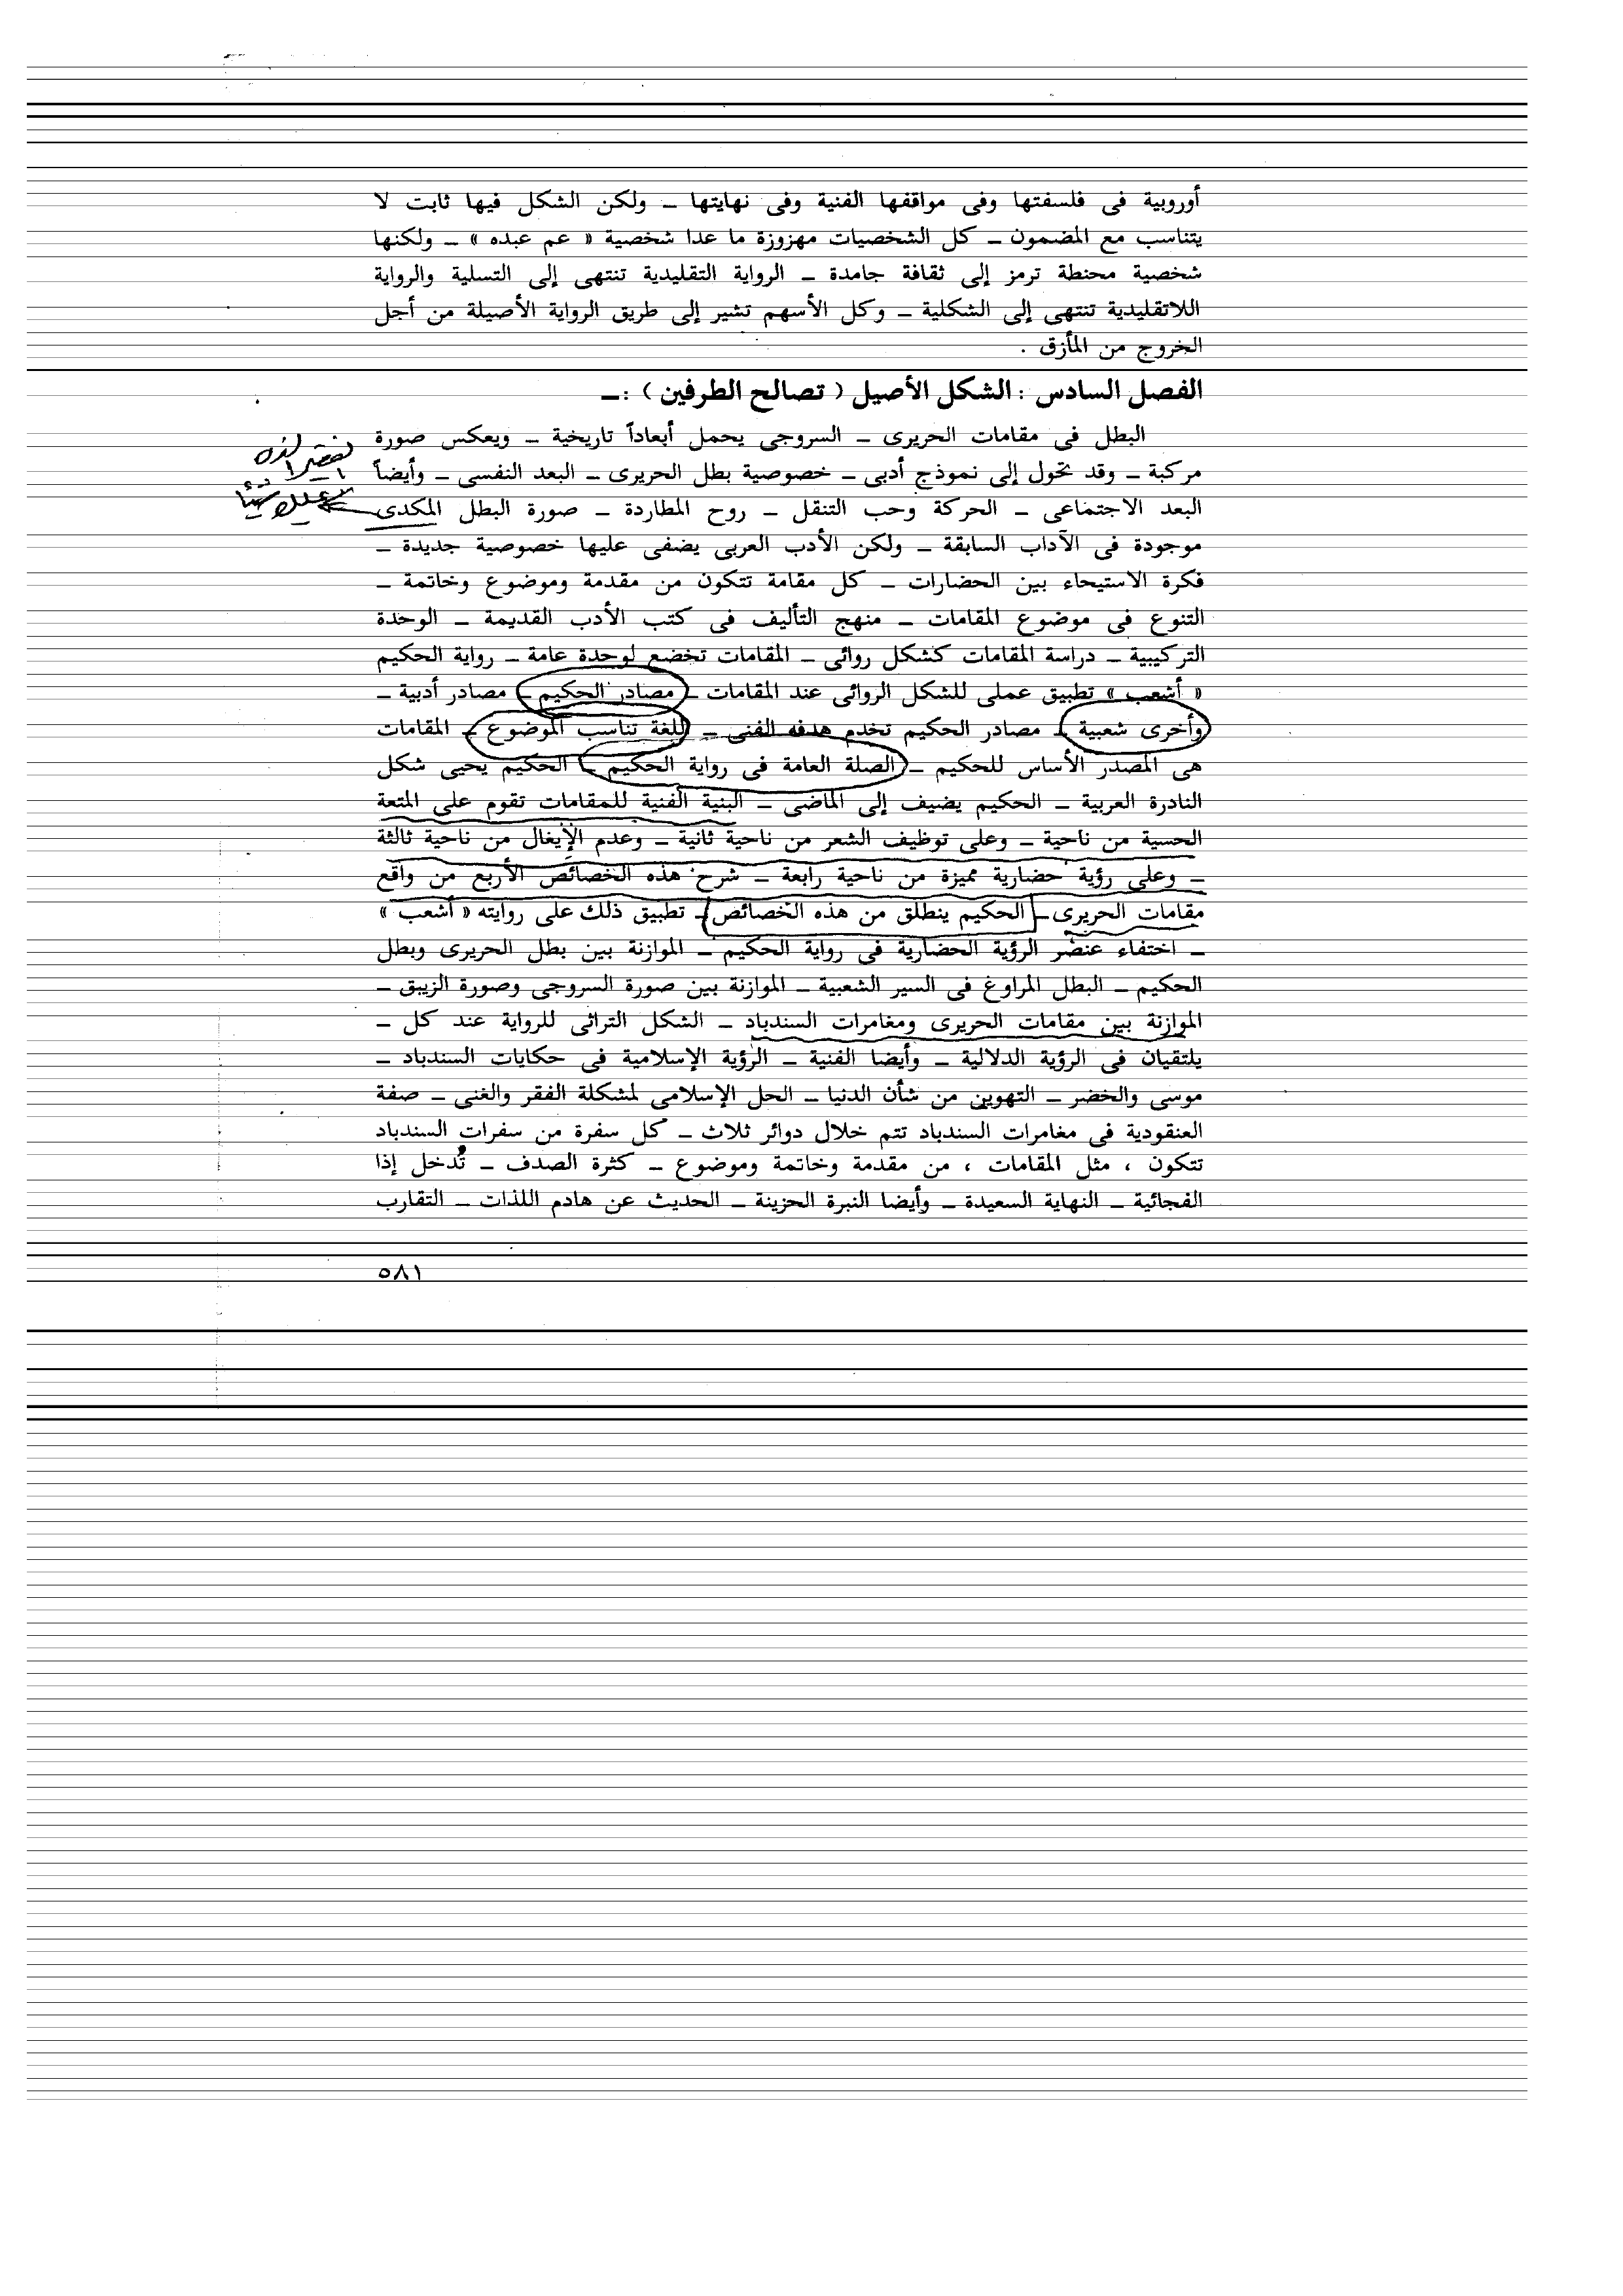 أوروبية فى فلسفتها وفى مواقفها الفنية وفى نهايتها ــ ولكن الشكل فيها ثابت لا
يتناسب مع المضمون ــ كل الشخصيات مهزوزة ما عدا شخصية « عم عبده » ــ ولكنها
شخصية محنطة ترمز إلى ثقافة جامدة ــ الرواية التقليدية تنتهى إلى التسلية والرواية
اللاتقليدية تنتهى إلى الشكلية ــ وكل الأسهم تشير إلى طريق الرواية الأصيلة من أجل
الخروج من المأزق .
الفصل السادس : الشكل الأصيل ( تصالح الطرفين ) :ــ
البطل فى مقامات الحريرى ــ السروجى يحمل أبعاداً تاريخية ــ ويعكس صورة
مركبة ــ وقد تحول إلى نموذج أدبى ــ خصوصية بطل الحريرى ــ البعد النفسى ــ وأيضاً
البعد الاجتماعى ــ الحركة وحب التنقل ــ روح المطاردة ــ صورة البطل المكدى
موجودة فى الآداب السابقة ــ ولكن الأدب العربى يضفى عليها خصوصية جديدة ــ
فكرة الاستيحاء بين الحضارات ــ كل مقامة تتكون من مقدمة وموضوع وخاتمة ــ
التنوع فى موضوع المقامات ــ منهج التأليف فى كتب الأدب القديمة ــ الوحدة
التركيبية ــ دراسة المقامات كشكل روائى ــ المقامات تخضع لوحدة عامة ــ رواية الحكيم
« أشعب » تطبيق عملى للشكل الروائى عند المقامات ــ مصادر الحكيم ــ مصادر أدبية ــ
وأخرى شعبية ــ مصادر الحكيم تخدم هدفه الفنى ــ اللغة تناسب الموضوع ــ المقامات
هى المصدر الأساس للحكيم ــ الصلة العامة فى رواية الحكيم ــ الحكيم يحيى شكل
النادرة العربية ــ الحكيم يضيف إلى الماضى ــ البنية الفنية للمقامات تقوم على المتعة
الحسية من ناحية ــ وعلى توظيف الشعر من ناحية ثانية ــ وعدم الإيغال من ناحية ثالثة
ــ وعلى رؤية حضارية مميزة من ناحية رابعة ــ شرح هذه الخصائص الأربع من واقع
مقامات الحريرى ــ الحكيم ينطلق من هذه الخصائص ــ تطبيق ذلك على روايته « أشعب »
ــ اختفاء عنصر الرؤية الحضارية فى رواية الحكيم ــ الموازنة بين بطل الحريرى وبطل
الحكيم ــ البطل المراوغ فى السير الشعبية ــ الموازنة بين صورة السروجى وصورة الزيبق ــ
الموازنة بين مقامات الحريرى ومغامرات السندباد ــ الشكل التراثى للرواية عند كل ــ
يلتقيان فى الرؤية الدلالية ــ وأيضا الفنية ــ الرؤية الإسلامية فى حكايات السندباد ــ
موسى والخضر ــ التهوين من شأن الدنيا ــ الحل الإسلامى لمشكلة الفقر والغنى ــ صفة
العنقودية فى مغامرات السندباد تتم خلال دوائر ثلاث ــ كل سفرة من سفرات السندباد
تتكون ، مثل المقامات ، من مقدمة وخاتمة وموضوع ــ كثرة الصدف ــ تُدخل إذا
الفجائية ــ النهاية السعيدة ــ وأيضا النبرة الحزينة ــ الحديث عن هادم اللذات ــ التقارب
٥٨١